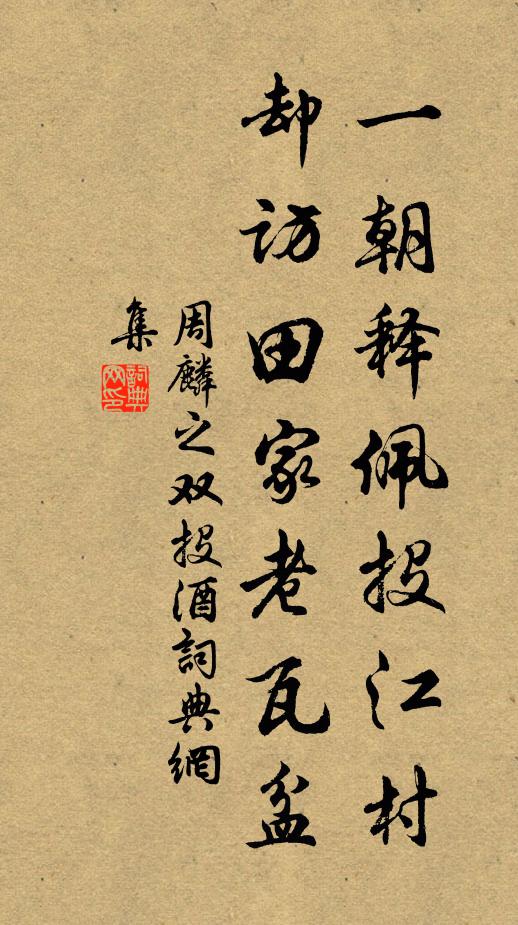 一朝释佩投江村
却访田家老瓦盆
周麟之双投酒詞典網
集
詞典网印